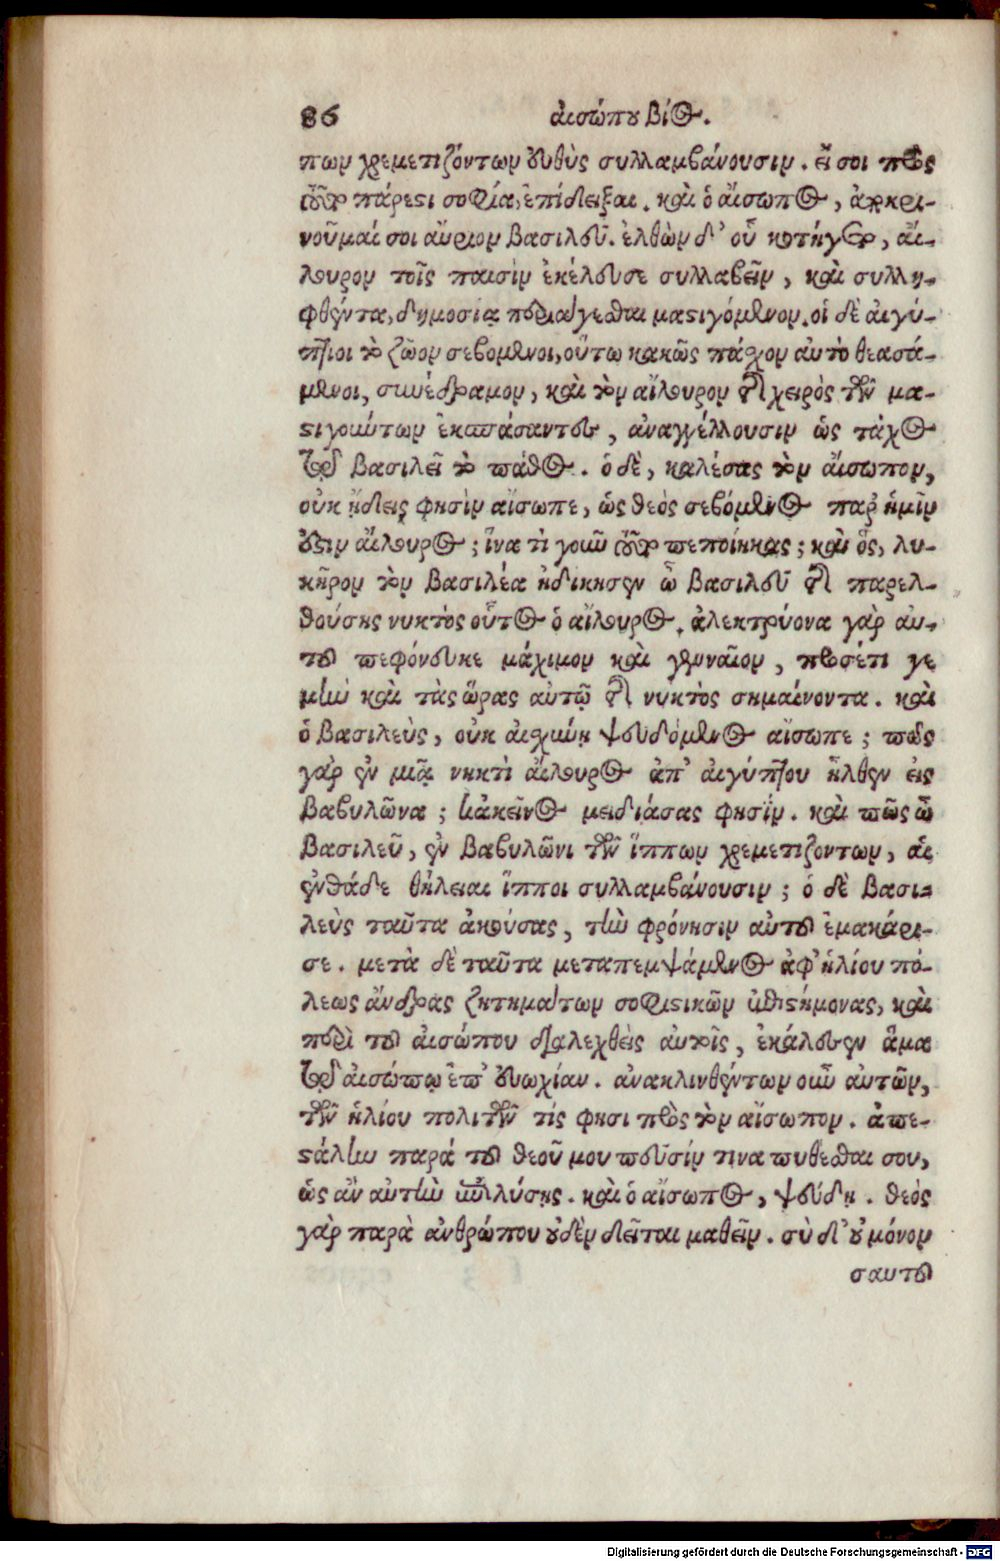 86 αἰσώπου βίος.
πων χρεμετιζόντων εὐθὺς συλλαμβάνουσιν. εἴ σοι πρὸς
τοῦτο πάρεστι σοφία, ἐπίδειξαι. καὶ ὁ αἴσωπος, ἀποκρι-
νοῦμαί σοι αὔριον βασιλεῦ. ἐλθὼν δ' οὗ κατήγετο, αἴ-
λουρον τοῖς παισὶν ἐκέλευσε συλλαβεῖν, καὶ συλλη-
φθέντα, δημοσίᾳ περιάγεσθαι μαστιγόμενον. οἱ δὲ αἰγύ-
πτιοι τὸ ζῶον σεβόμενοι, οὕτω κακῶς πάσχον αὐτὸ θεασά-
μενοι, συνέδραμον, καὶ τὸν αἴλουρον ἐκ χειρὸς τῶν μα-
στιγούντων ἐκσπάσαντες, ἀναγγέλλουσιν ὡς τάχος
τῷ βασιλεῖ τὸ πάθος. ὁ δὲ, καλέσας τὸν αἴσωπον,
οὐκ ᾔδεις φησὶν αἴσωπε, ὡς θεὸς σεβόμενος παρ' ἡμῖν
ἐστιν αἴλουρος; ἵνα τὶ γοῦν τοῦτο πεποίηκας; καὶ ὃς, λυ-
κῆρον τὸν βασιλέα ἠδίκησεν ὦ βασιλεῦ τῆς παρελ-
θούσης νυκτὸς οὗτος ὁ αἴλουρος. ἀλεκτρύονα γὰρ αὐ-
τοῦ πεφόνευκε μάχιμον καὶ γενναῖον, προσέτι γε
μὴν καὶ τὰς ὥρας αὐτῷ τῆς νυκτὸς σημαίνοντα. καὶ
ὁ βασιλεὺς, οὐκ αἰσχύνῃ ψευδόμενος αἴσωπε; πῶς
γὰρ ἐν μιᾷ νηκτὶ αἴλουρος ἀπ' αἰγύπτου ἦλθεν εἰς
βαβυλῶνα; κἀκεῖνος μειδιάσας φησίν. καὶ πῶς ὦ
βασιλεῦ, ἐν βαβυλῶνι τῶν ἵππων χρεμετιζοντων, αἱ
ἐνθάδε θήλειαι ἵπποι συλλαμβάνουσιν; ὁ δὲ βασι-
λεὺς ταῦτα ἀκούσας, τὴν φρόνησιν αὐτοῦ ἐμακάρι-
σε. μετὰ δὲ ταῦτα μεταπεμψάμενος ἀφ' ἡλίου πό-
λεως ἄνδρας ζητημάτων σοφιστικῶν ἐπιστήμονας, καὶ
περὶ τοῦ αἰσώπου διαλεχθεὶς αὐτοῖς, ἐκάλεσεν ἅμα
τῷ αἰσώπῳ ἐπ' εὐωχίαν. ἀνακλινθέντων οὖν αὐτῶν,
τῶν ἡλίου πολιτῶν τίς φησι πρὸς τὸν αἴσωπον. ἀπε-
στάλην παρά τοῦ θεοῦ μου πεῦσίν τινα πυθέσθαι σου,
ὡς ἂν αὐτὴν ἐπιλύσῃς. καὶ ὁ αἴσωπος, ψεύδῃ. θεὸς
γὰρ παρὰ ἀνθρώπου οὐδὲν δεῖται μαθεῖν. σὺ δ' οὐ μόνον
σαυτοῦ
Digitalisierung gefördert durch die Deutsche Forschungsgemeinschaft - DFG